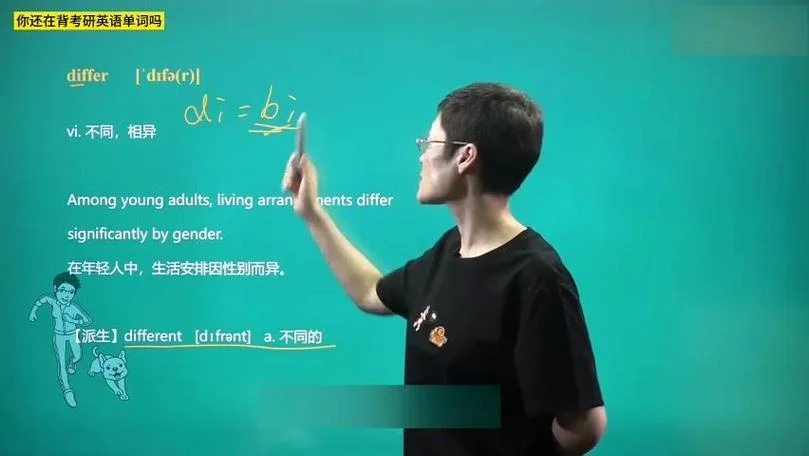 你还在背考研英语单词吗
differ [ˈdɪfə(r)]
di = bi
vi. 不同，相异
Among young adults, living arran ments differ
significantly by gender.
在年轻人中，生活安排因性别而异。
【派生】different [dɪfrənt] a. 不同的